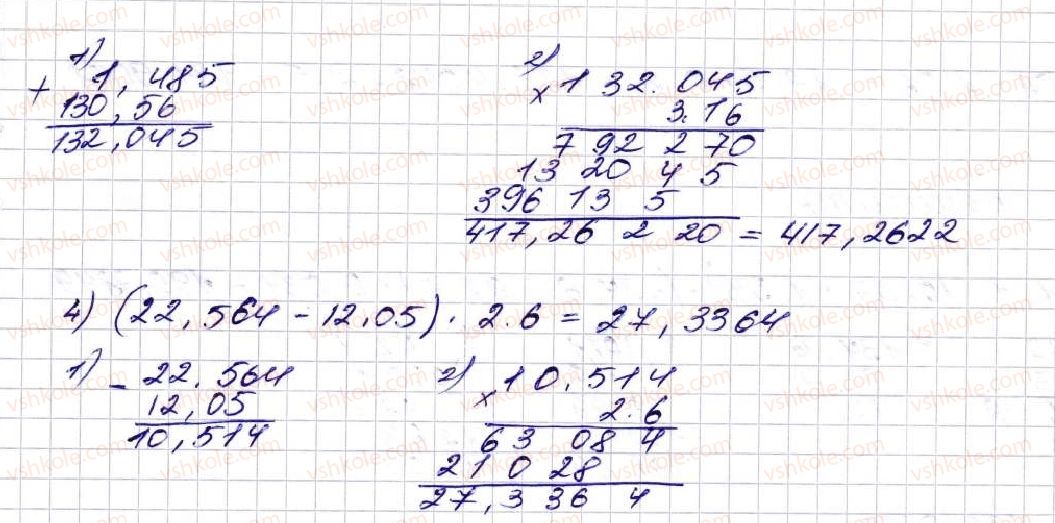 1)
+ 1,485
130,56
132,045
2)
x 132.045
3.16
792 2 70
13 20 4 5
396 13 5
417,26 2 20 = 417,2622
4) (22,564 - 12,05) · 2.6 = 27,3364
1) - 22.564
12,05
10,514
2) x 10.514
2.6
63 08 4
21 0 28
27,3 36 4